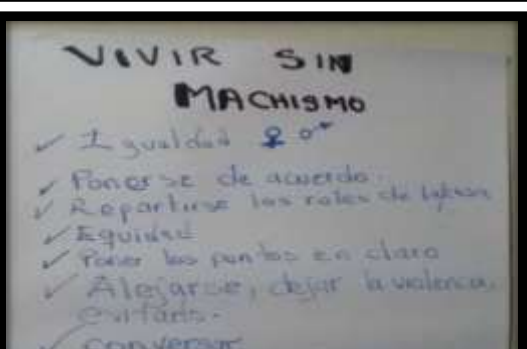 VIVIR SIN
MACHISMO
✓ Igualdad ♀ ♂
✓ Ponerse de acuerdo.
✓ Repartirse los roles de
✓ Equidad
✓ Poner los puntos en claro
✓ Alejarse, dejar la violencia,
evitarlo.
✓ conversar